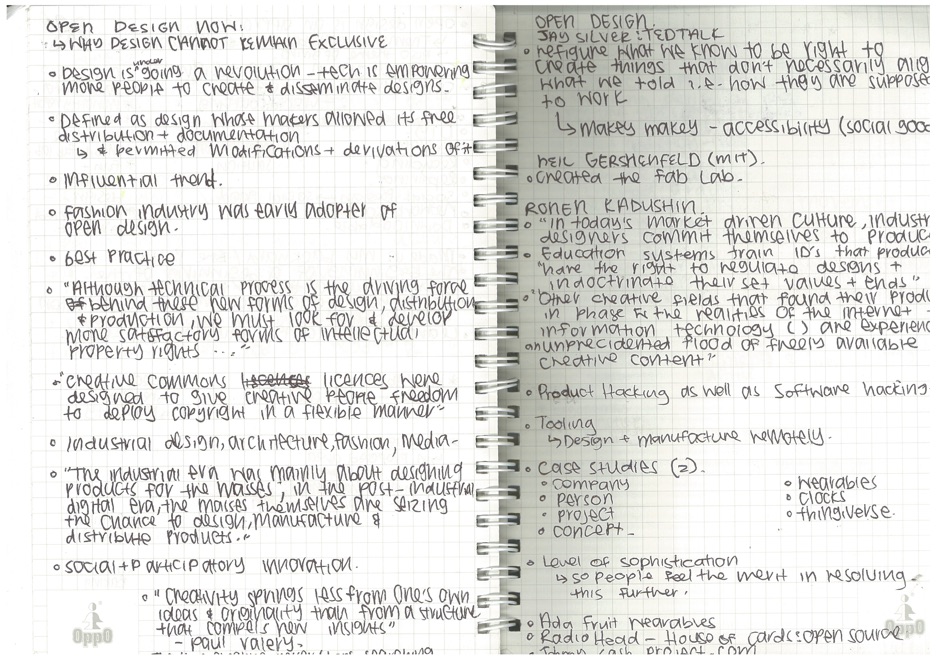 OPEN DESIGN NOW:
↳ WHY DESIGN CANNOT REMAIN EXCLUSIVE
• Design is under going a revolution – tech is empowering
more people to create & disseminate designs.
• Defined as design whose makers allowed its free
distribution + documentation
↳ & permitted modifications + derivations of it
• Influential trend.
• fashion industry was early adopter of
open design.
• best practice
• "Although technical process is the driving force
behind these new forms of design, distribution
& production, we must look for & develop
more satisfactory forms of intellectual
property rights ..."
"creative commons licences were
designed to give creative people freedom
to deploy copyright in a flexible manner"
• Industrial design, architecture, fashion, media-
• "The industrial era was mainly about designing
products for the masses, in the post-industrial
digital era, the masses themselves are seizing
the chance to design, manufacture &
distribute products."
• social + participatory innovation.
• "Creativity springs less from one's own
ideas & originality than from a structure
that compels new insights"
– paul valery.
OppO
OPEN DESIGN.
JAY SILVER: TEDTALK
• refigure what we know to be right to
create things that don't necessarily alig
what we told i.e. how they are suppose
to work
↳ Makey makey – accessibility (social good
NEIL GERSHENFELD (MIT).
• created the fab lab.
RONEN KADUSHIN
• "In today's market driven culture, industr
designers commit themselves to produc
• Education systems train ID's that produc
"have the right to regulate designs +
indoctrinate their set values + ends"
• "Other creative fields that found their produ
in phase the realities of the internet
information technology () are experienc
an unprecidented flood of freely available
creative content"
• Product Hacking as well as software hacking
• Tooling
↳ Design + manufacture remotely.
• Case studies (2).
• company
• person
• project
• concept
• wearables
• clocks
• thingiverse.
• Level of sophistication
↳ so people feel the merit in resolving
this further.
• Ada fruit wearables
• RadioHead – House of cards: open source
OppO